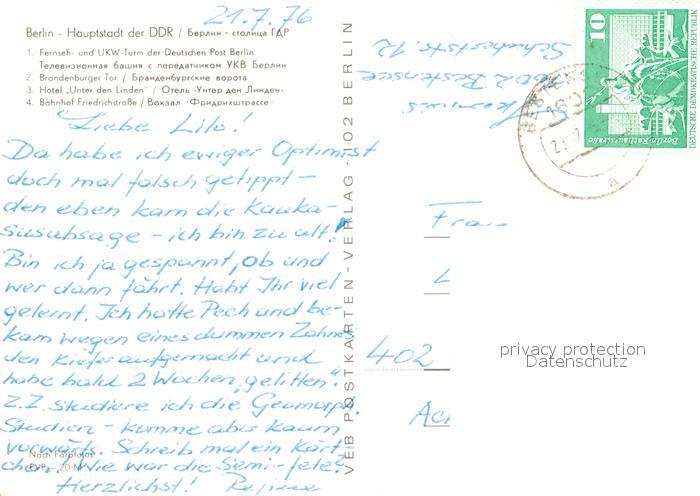 21.7.76
Berlin - Hauptstadt der DDR / Берлин - столица ГДР
1. Fernseh- und UKW-Turm der Deutschen Post Berlin
Телевизионная башня с передатчиком УКВ Берлин
2. Brandenburger Tor / Бранденбургские ворота
3. Hotel „Unter den Linden“ / Отель „Унтер ден Линден“
4. Bahnhof Friedrichstraße / Вокзал „Фридрихштрассе“
Liebe Lilo!
Da habe ich ewiger Optimist
doch mal falsch getippt -
den eben kam die Kauka-
susabsage - ich bin zu alt!
Bin ich ja gespannt, ob und
wer dann fährt. Habt Ihr viel
gelernt. Ich hatte Pech und be-
kam wegen eines dummen Zahnes
den Kiefer aufgemacht und
habe bald 2 Wochen „gelitten“.
Z.Z. studiere ich die Geomorph.
Studien - komme aber kaum
vorwärts. Schreib mal ein Kärt-
chen, Wie war die Semi-fete?
Herzlichst! Regine
Nach Farbfotos
EVP -,20 M
VEB POSTKARTEN-VERLAG 102 BERLIN
Bestensee
Schubertstr. 12
10
Berlin Rathausstraße
DEUTSCHE DEMOKRATISCHE REPUBLIK
BESTENSEE
a
Frau
L
402
privacy protection
Datenschutz